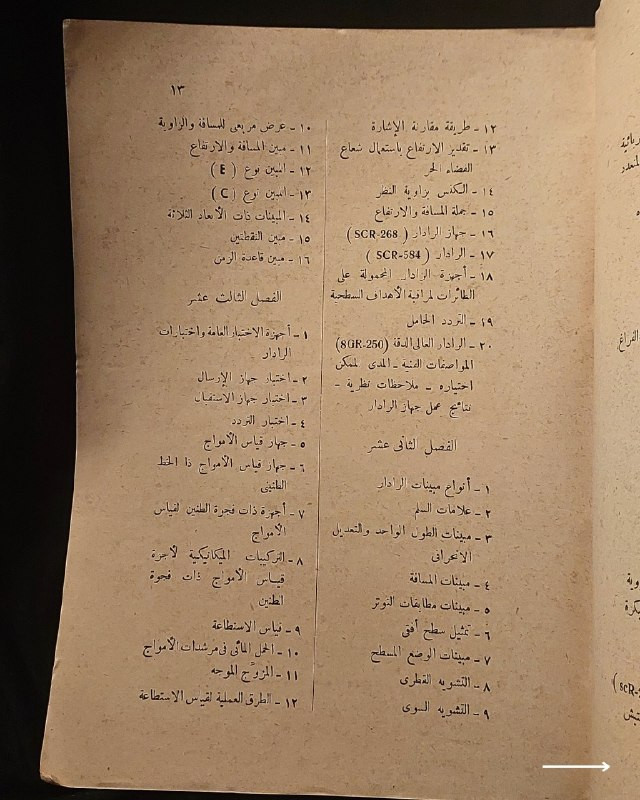 ١٣
١٢ - طريقة مقارنة الإشارة
١٣ - تقدير الارتفاع باستعمال شعاع
الفضاء الحر
١٤ - الكنس بزاوية النظر
١٥ - جملة المسافة والارتفاع
١٦ - جهاز الرادار ( SCR-268 )
١٧ - الرادار ( SCR-584 )
١٨ - أجهزة الرادار المحمولة على
الطائرات لمراقبة الأهداف السطحية
١٩ - التردد الحامل
٢٠ - الرادار العالى الدقة (8GR-250)
المواصفات الفنية - المدى الممكن
اختياره - ملاحظات نظرية -
نتائج عمل جهاز الرادار
الفصل الثانى عشر
١ - أنواع مبينات الرادار
٢ - علامات السلم
٣ - مبينات الطول الواحد والتعديل
الانحرافى
٤ - مبينات المسافة
٥ - مبينات مطابقات التوتر
٦ - تمثيل سطح أفقى
٧ - مبينات الوضع المسطح
٨ - التشويه القطرى
٩ - التشويه السوى
١٠ - عرض مربعى للمسافة والزاوية
١١ - مبين المسافة والارتفاع
١٢ - المبين نوع ( E )
١٣ - المبين نوع ( C )
١٤ - المبينات ذات الأبعاد الثلاثة
١٥ - مبين النقطتين
١٦ - مبين قاعدة الزمن
الفصل الثالث عشر
١ - أجهزة الاختبار العامة واختبارات
الرادار
٢ - اختبار جهاز الإرسال
٣ - اختبار جهاز الاستقبال
٤ - اختبار التردد
٥ - جهاز قياس الأمواج
٦ - جهاز قياس الأمواج ذا الخط
الطنينى
٧ - أجهزة ذات فجوة الطنين لقياس
الأمواج
٨ - التركيبات الميكانيكية لأجهزة
قيـاس الأمواج ذات فجوة
الطنين
٩ - قياس الاستطاعة
١٠ - الحمل المائى فى مرشدات الأمواج
١١ - المزوج الموجه
١٢ - الطرق العملية لقياس الاستطاعة